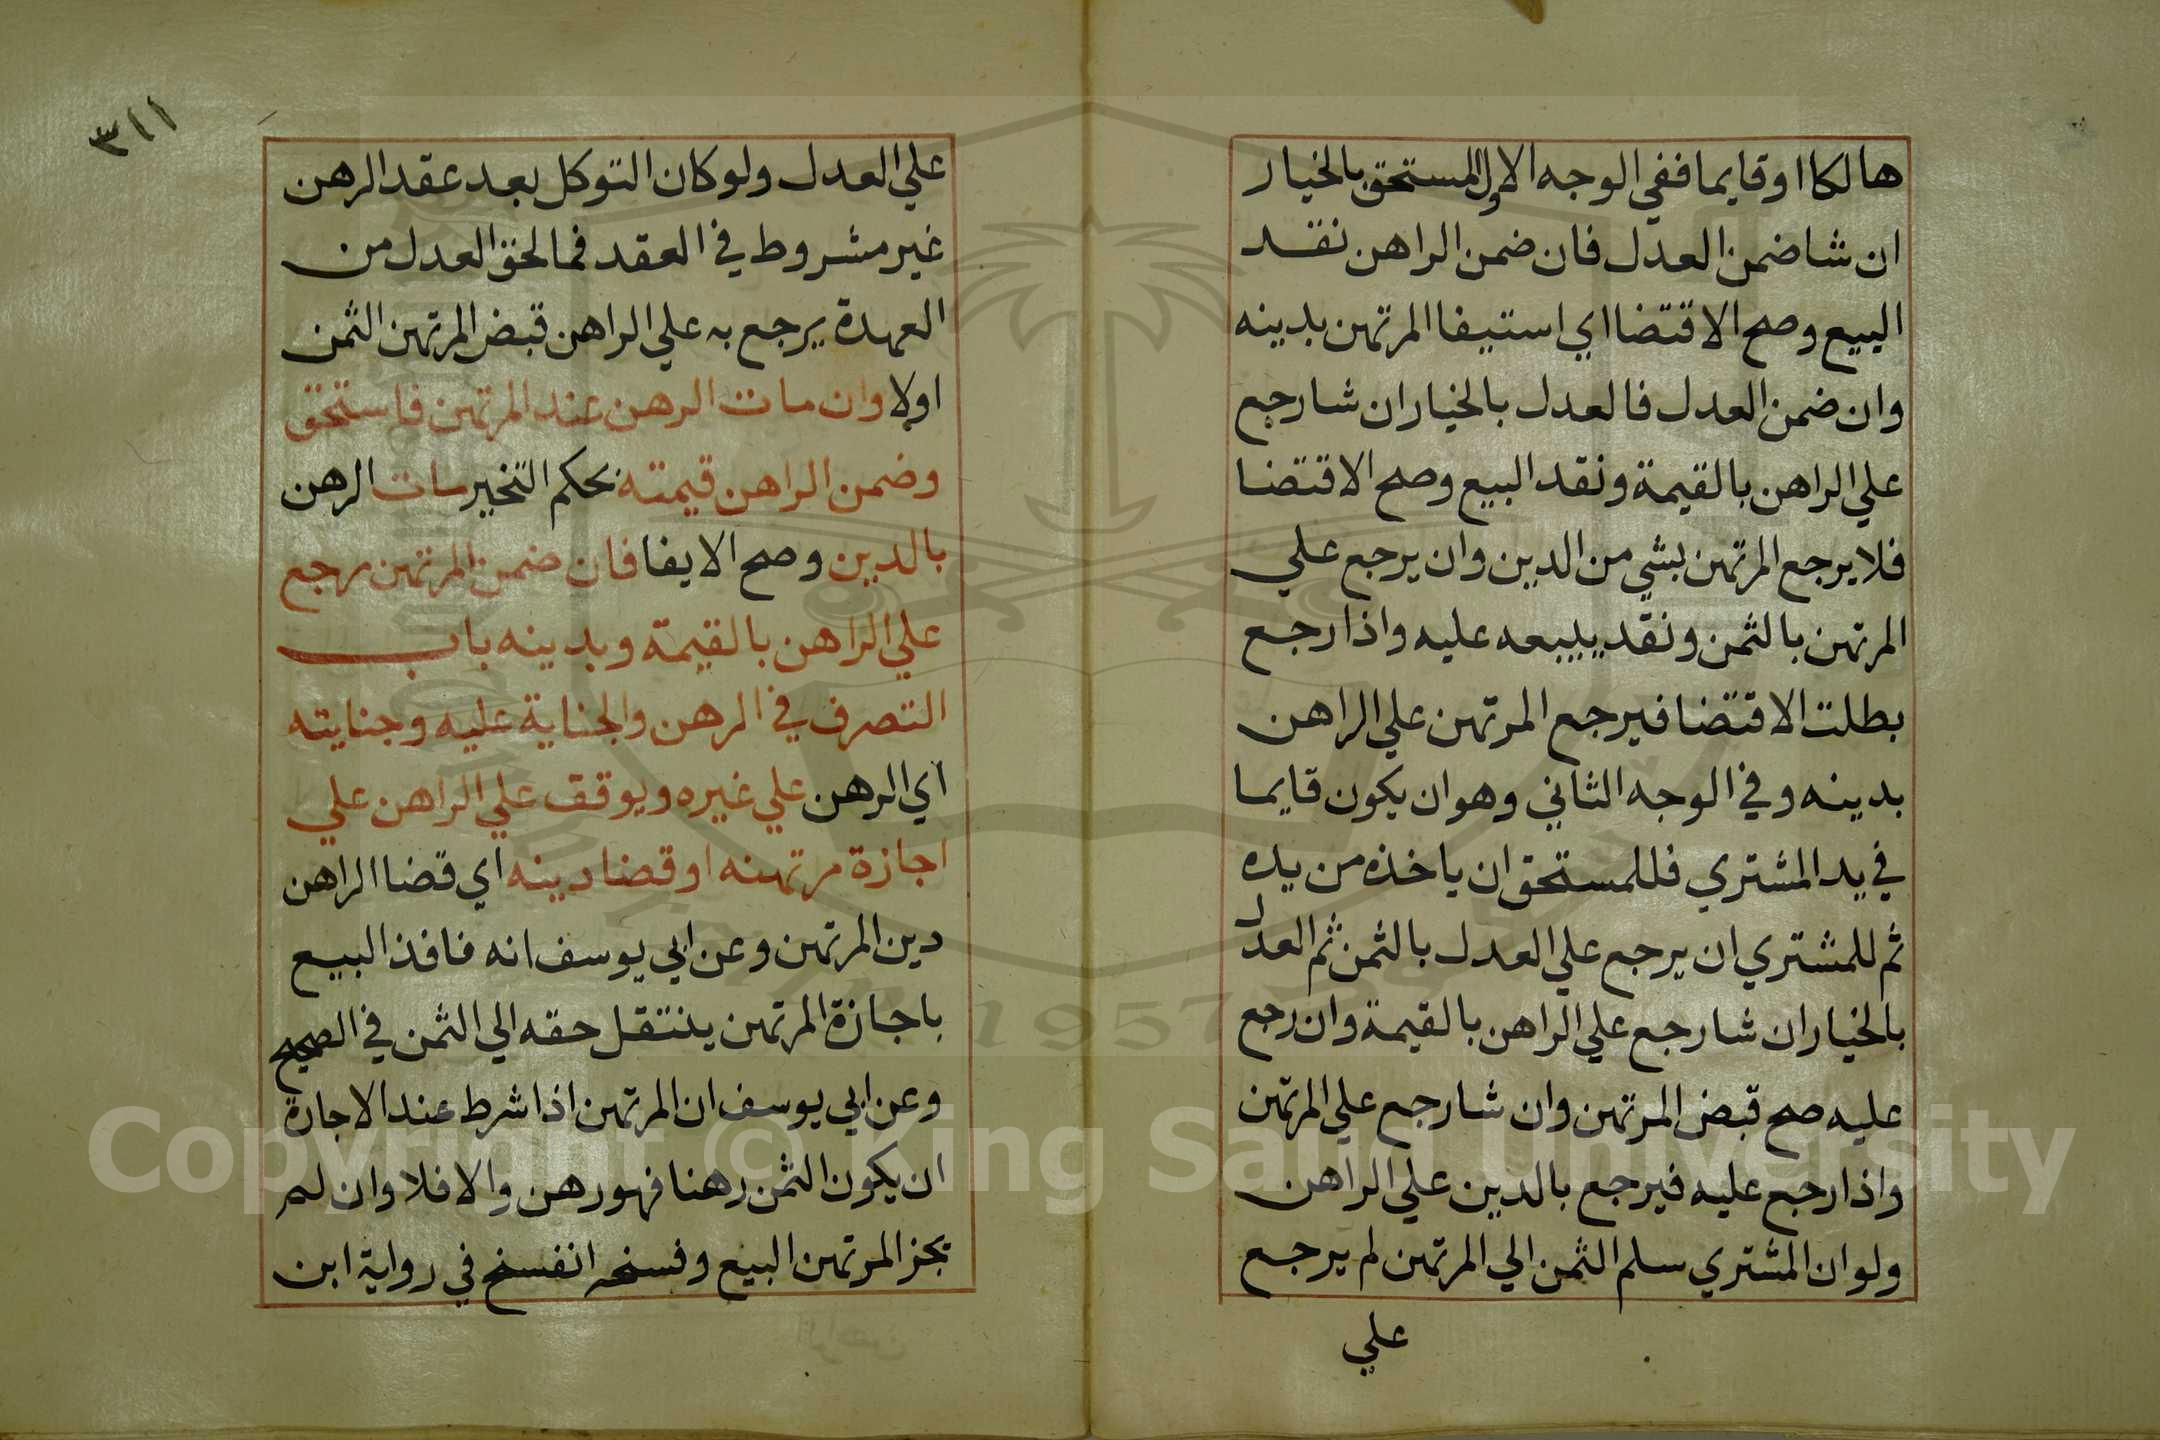 هالكا او قايما ففي الوجه الاول المستحق بالخيار
ان شا ضمن العدل فان ضمن الراهن نقد
البيع وصح الاقتضا اي استيفا المرتهن بدينه
وان ضمن العدل فالعدل بالخيار ان شا رجع
علي الراهن بالقيمة ونقد البيع وصح الاقتضا
فلا يرجع المرتهن بشي من الدين وان يرجع علي
المرتهن بالثمن ونقد بيعه عليه واذا رجع
بطلت الاقتضا فيرجع المرتهن علي الراهن
بدينه وفي الوجه الثاني وهو ان يكون قايما
في يد المشتري فللمستحق ان ياخذه من يده
ثم للمشتري ان يرجع علي العدل بالثمن ثم العدل
بالخيار ان شا رجع علي الراهن بالقيمة وان رجع
عليه صح قبض المرتهن وان شا رجع علي المرتهن
واذا رجع عليه فيرجع بالدين علي الراهن
ولو ان المشتري سلم الثمن الي المرتهن لم يرجع
علي
٣١١
علي العدل ولو كان التوكل بعد عقد الرهن
غير مشروط في العقد فما لحق العدل من
العهدة يرجع به علي الراهن قبض المرتهن الثمن
اولا وان مات الرهن عند المرتهن فاستحق
وضمن الراهن قيمته بحكم التخير مات الرهن
بالدين وصح الايفا فان ضمن المرتهن رجع
علي الراهن بالقيمة وبدينه باب
التصرف في الرهن والجناية عليه وجنايته
اي الرهن علي غيره ويوقف علي الراهن علي
اجازة مرتهنه او قضا دينه اي قضا الراهن
دين المرتهن وعن ابي يوسف انه فافذ البيع
باجازة المرتهن ينتقل حقه الي الثمن في الصحيح
وعن ابي يوسف ان المرتهن اذا شرط عند الاجازة
ان يكون الثمن رهنا فهو رهن والا فلا وان لم
يجز المرتهن البيع وفسخه انفسخ في رواية ابن
Copyright © King Saud University
1957